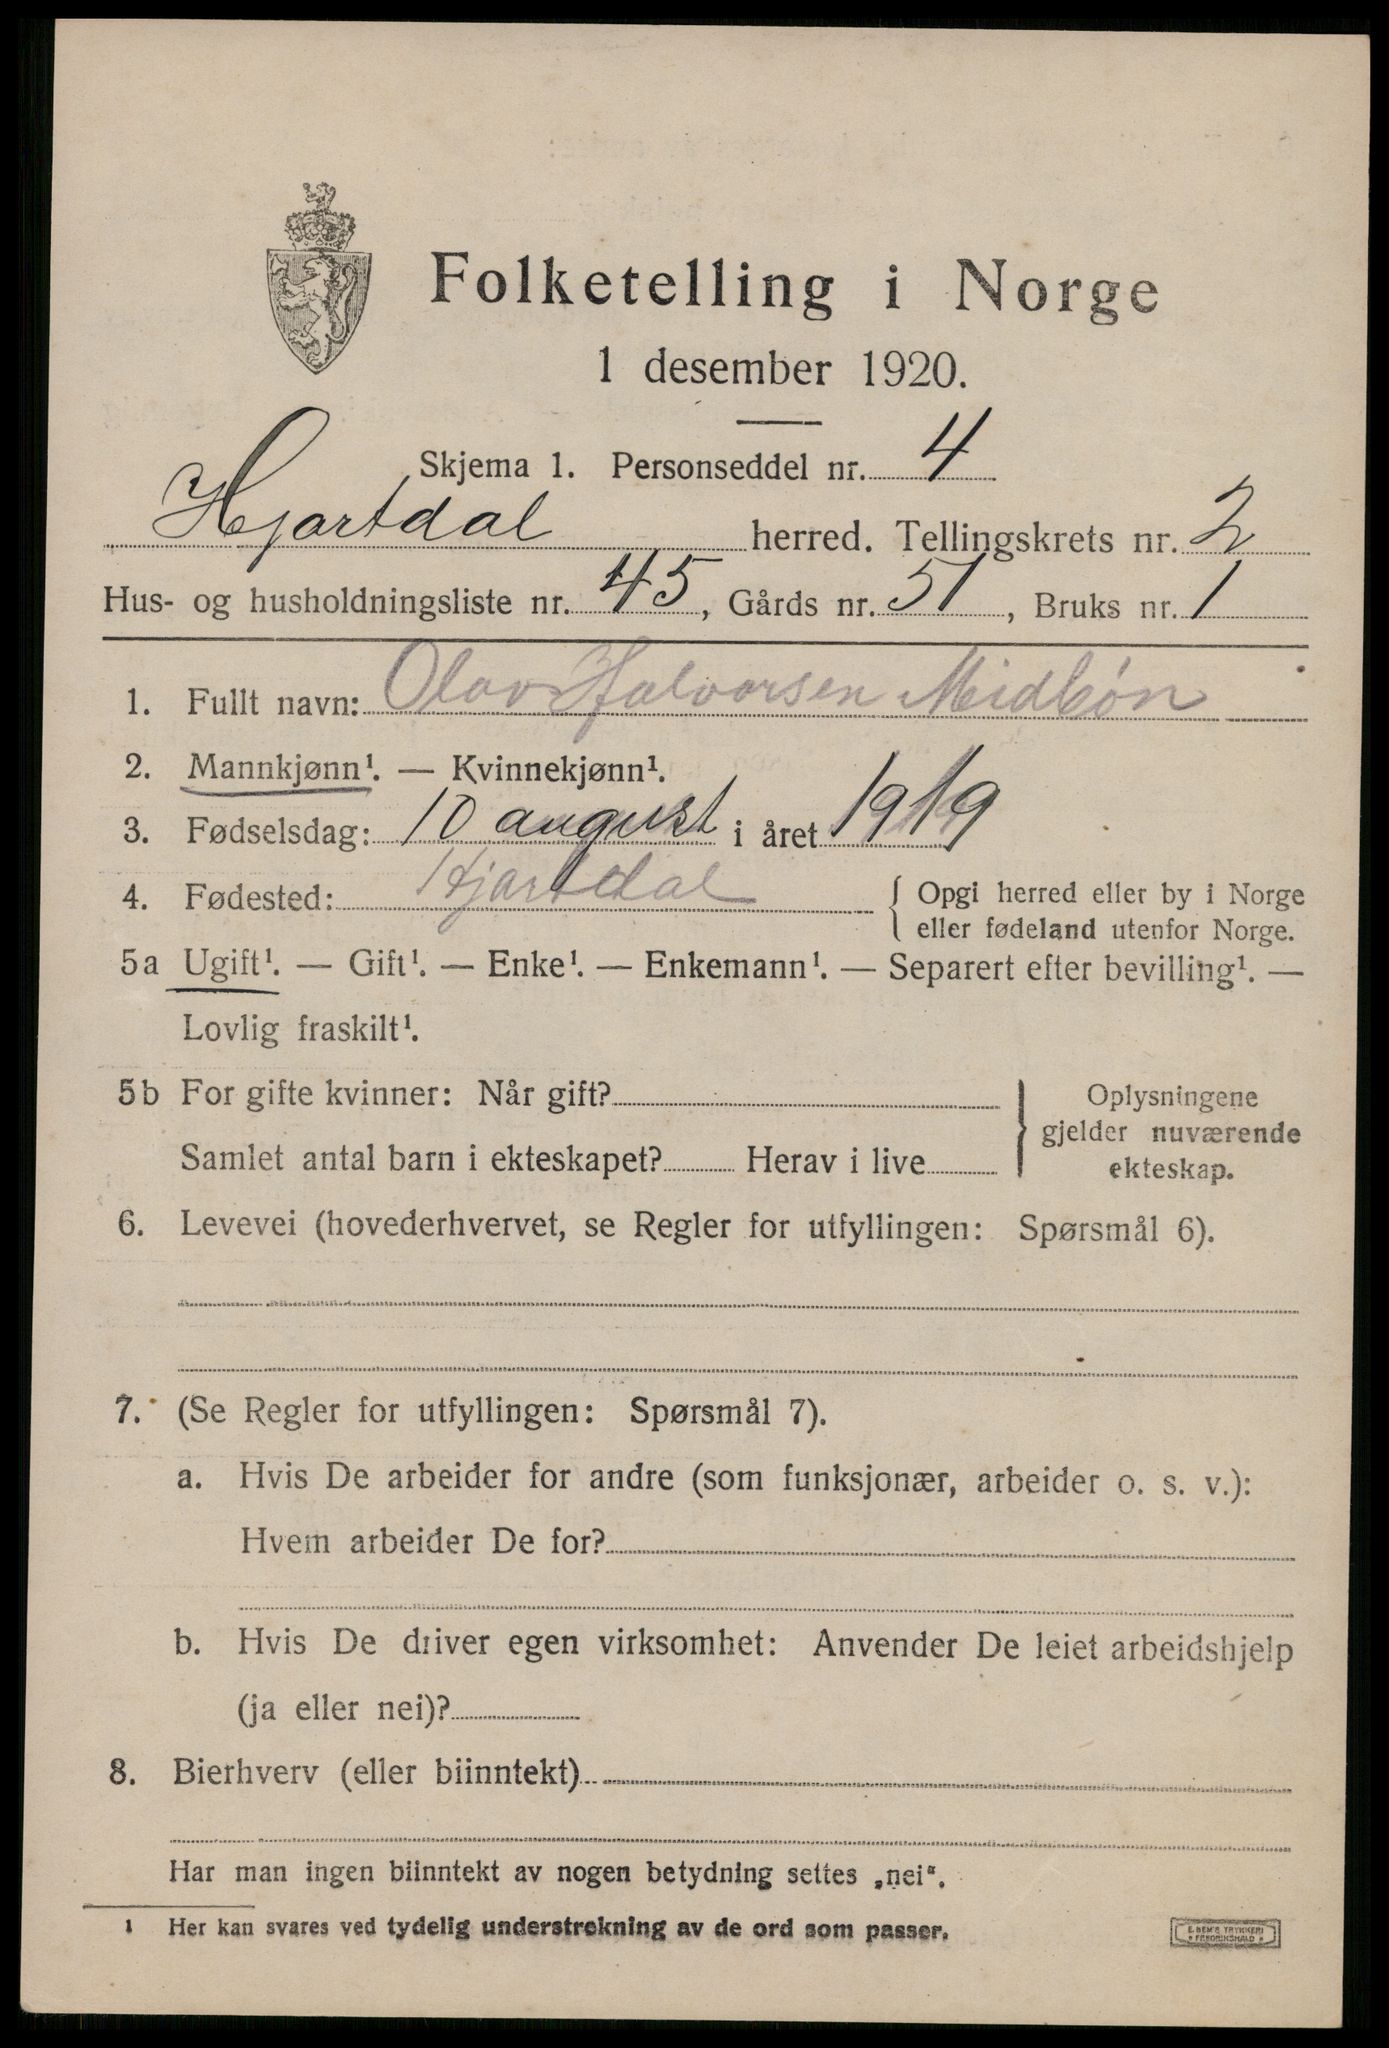 Folketelling i Norge
1 desember 1920.
Skjema 1. Personseddel nr. 4
Hjartdal herred. Tellingskrets nr. 2
Hus- og husholdningsliste nr. 45, Gårds nr. 51, Bruks nr. 1
1. Fullt navn: Olav Halvorsen Midbøn
2. Mannkjønn¹. — Kvinnekjønn¹.
3. Fødselsdag: 10 august i året 1919
4. Fødested: Hjartdal { Opgi herred eller by i Norge
eller fødeland utenfor Norge.
5a Ugift¹. — Gift¹. — Enke¹. — Enkemann¹. — Separert efter bevilling¹. —
Lovlig fraskilt¹.
5b For gifte kvinner: Når gift?
Samlet antal barn i ekteskapet? Herav i live
} Oplysningene
gjelder nuværende
ekteskap.
6. Levevei (hovederhvervet, se Regler for utfyllingen: Spørsmål 6).
7. (Se Regler for utfyllingen: Spørsmål 7).
a. Hvis De arbeider for andre (som funksjonær, arbeider o. s. v.):
Hvem arbeider De for?
b. Hvis De driver egen virksomhet: Anvender De leiet arbeidshjelp
(ja eller nei)?
8. Bierhverv (eller biinntekt)
Har man ingen biinntekt av nogen betydning settes „nei“.
¹ Her kan svares ved tydelig understrekning av de ord som passer.
E. SEM'S TRYKKERI
FREDRIKSHALD